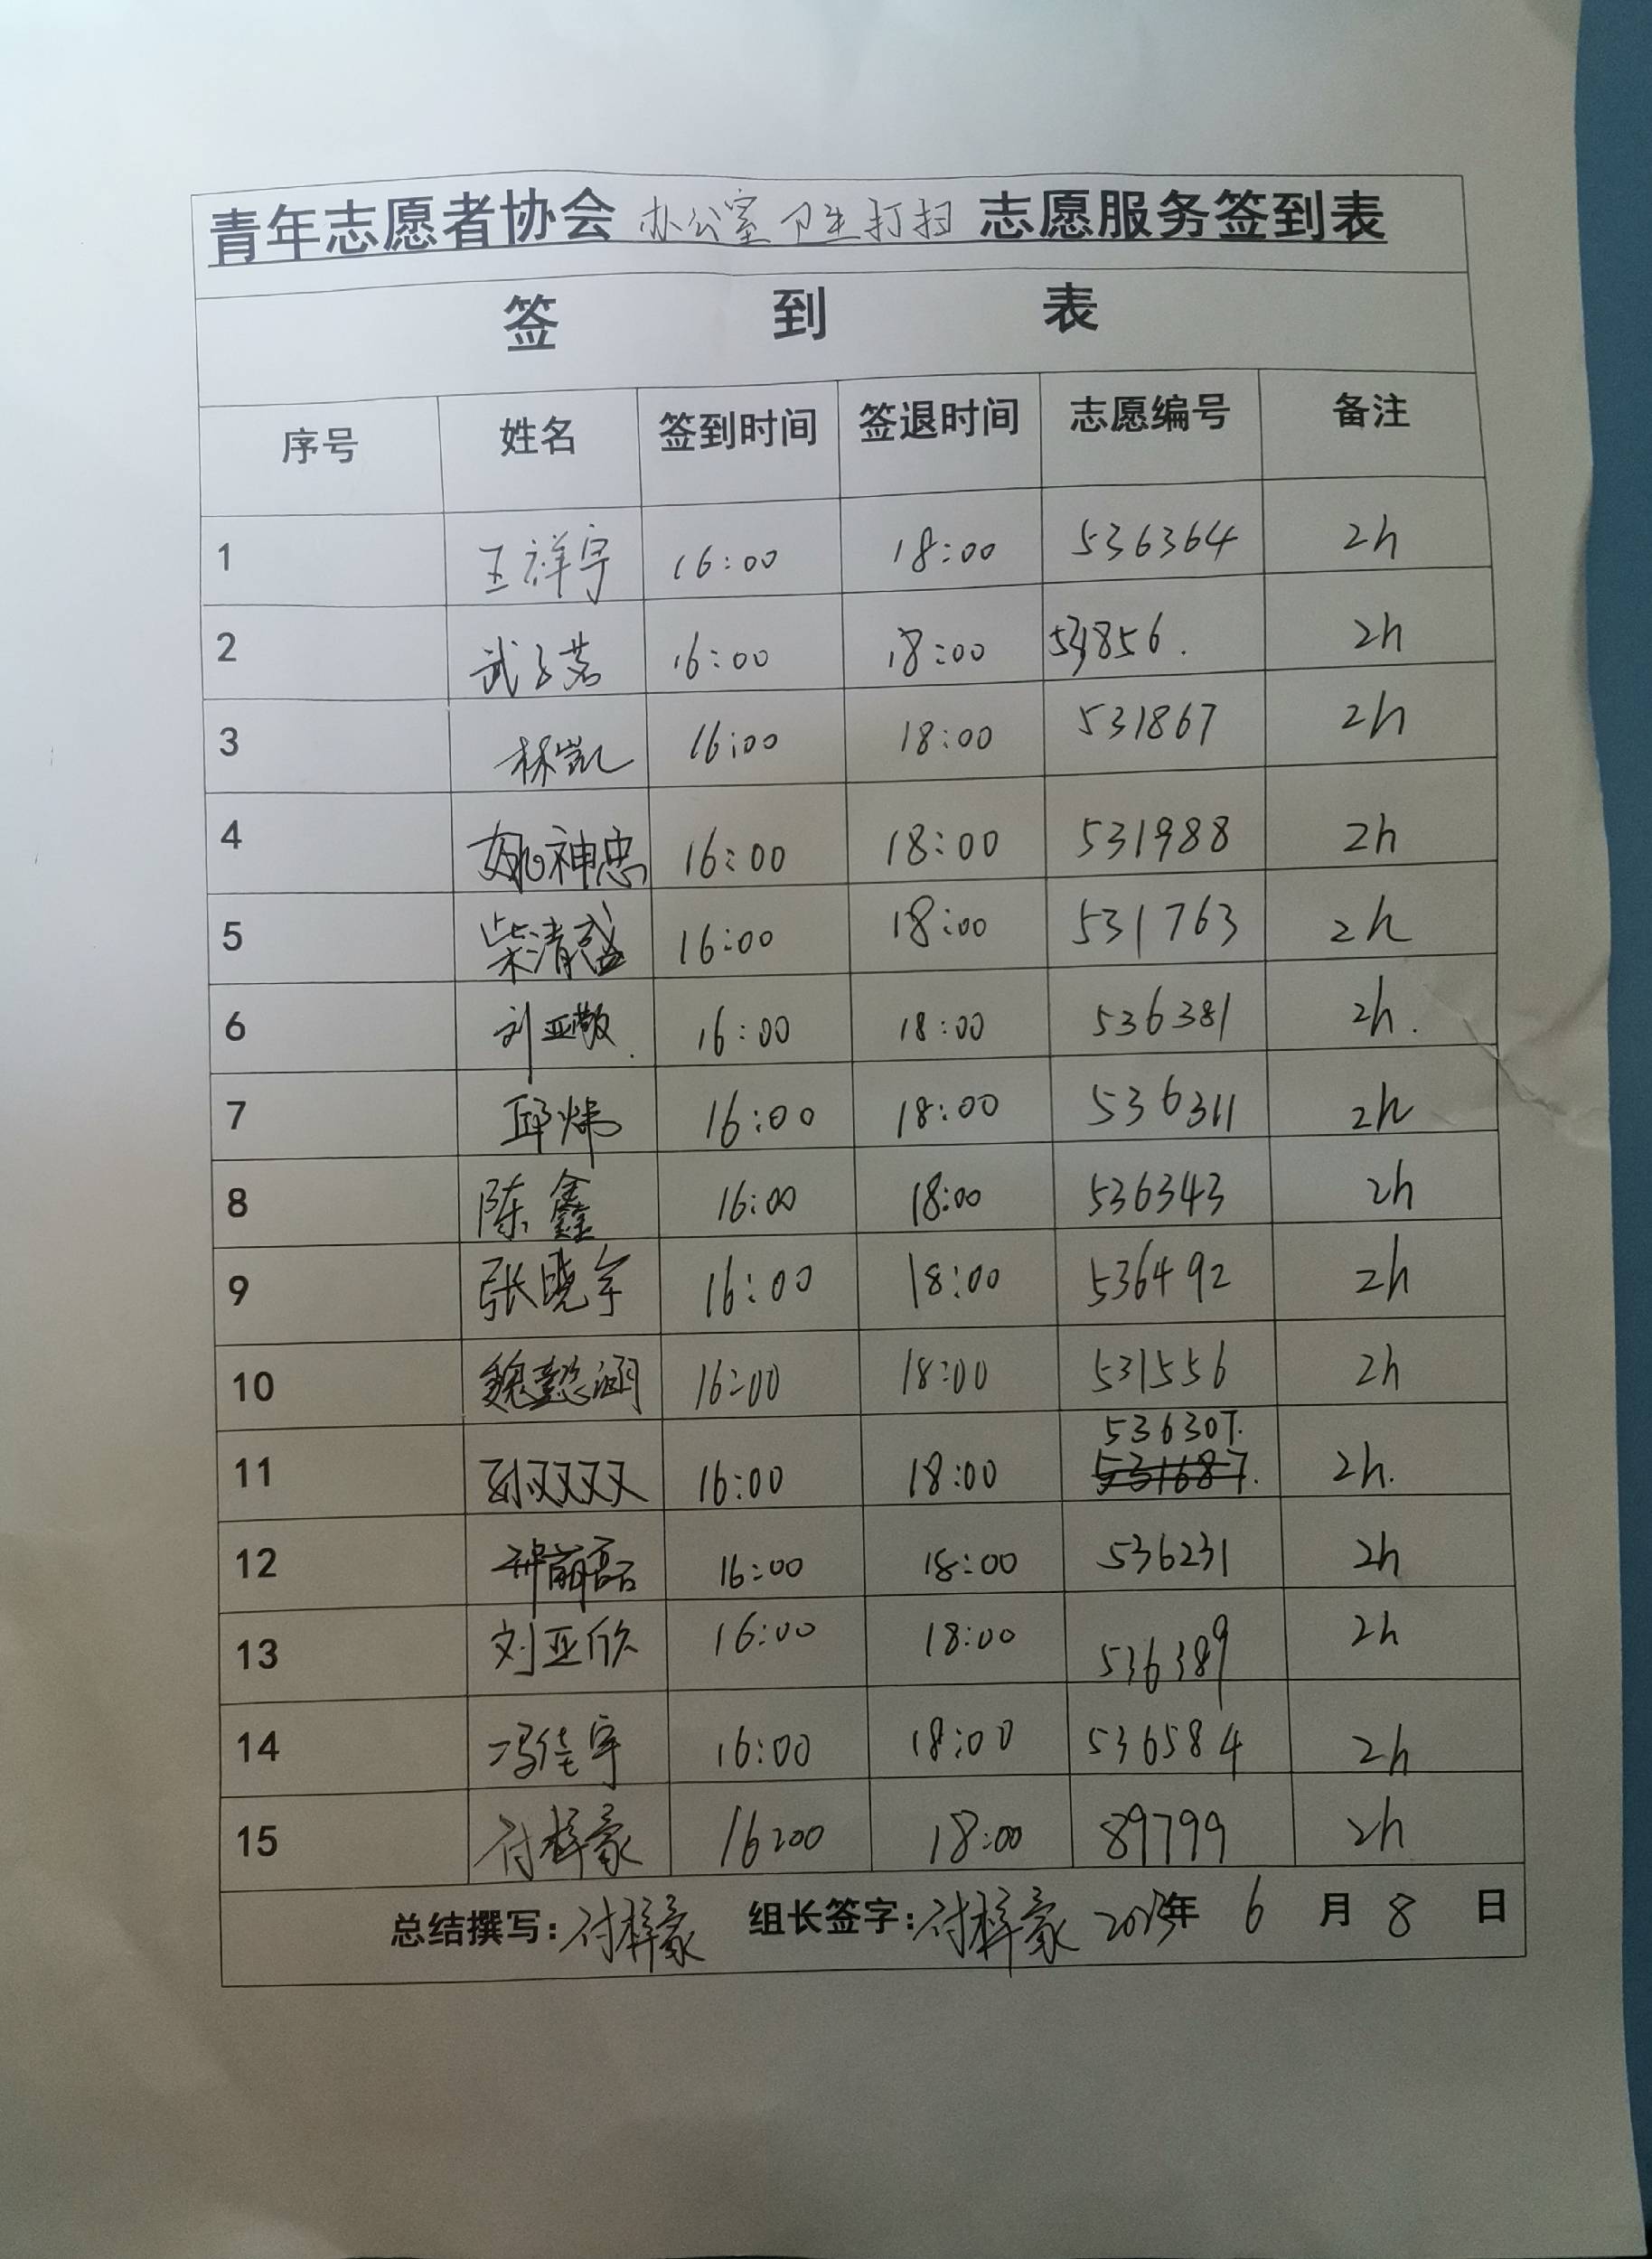 青年志愿者协会 办公室卫生打扫 志愿服务签到表
签 到 表
序号 姓名 签到时间 签退时间 志愿编号 备注
1 王祥宇 16:00 18:00 536364 2h
2 武子茗 16:00 18:00 2h
3 林凯 16:00 18:00 531867 2h
4 姚神忠 16:00 18:00 531988 2h
5 柴清盛 16:00 18:00 531763 2h
6 刘亚敬 16:00 18:00 536381 2h.
7 邱炜 16:00 18:00 536311 2h
8 陈鑫 16:00 18:00 536343 2h
9 张晓宇 16:00 18:00 536492 2h
10 魏懿涵 16:00 18:00 531556 2h
536307.
11 孙双双 16:00 18:00 531687. 2h.
12 16:00 18:00 536231 2h
13 刘亚欣 16:00 18:00 536389 2h
14 冯佳宇 16:00 18:00 536584 2h
15 付梓豪 16:00 18:00 89799 2h
总结撰写:付梓豪 组长签字:付梓豪 2023年 6 月 8 日